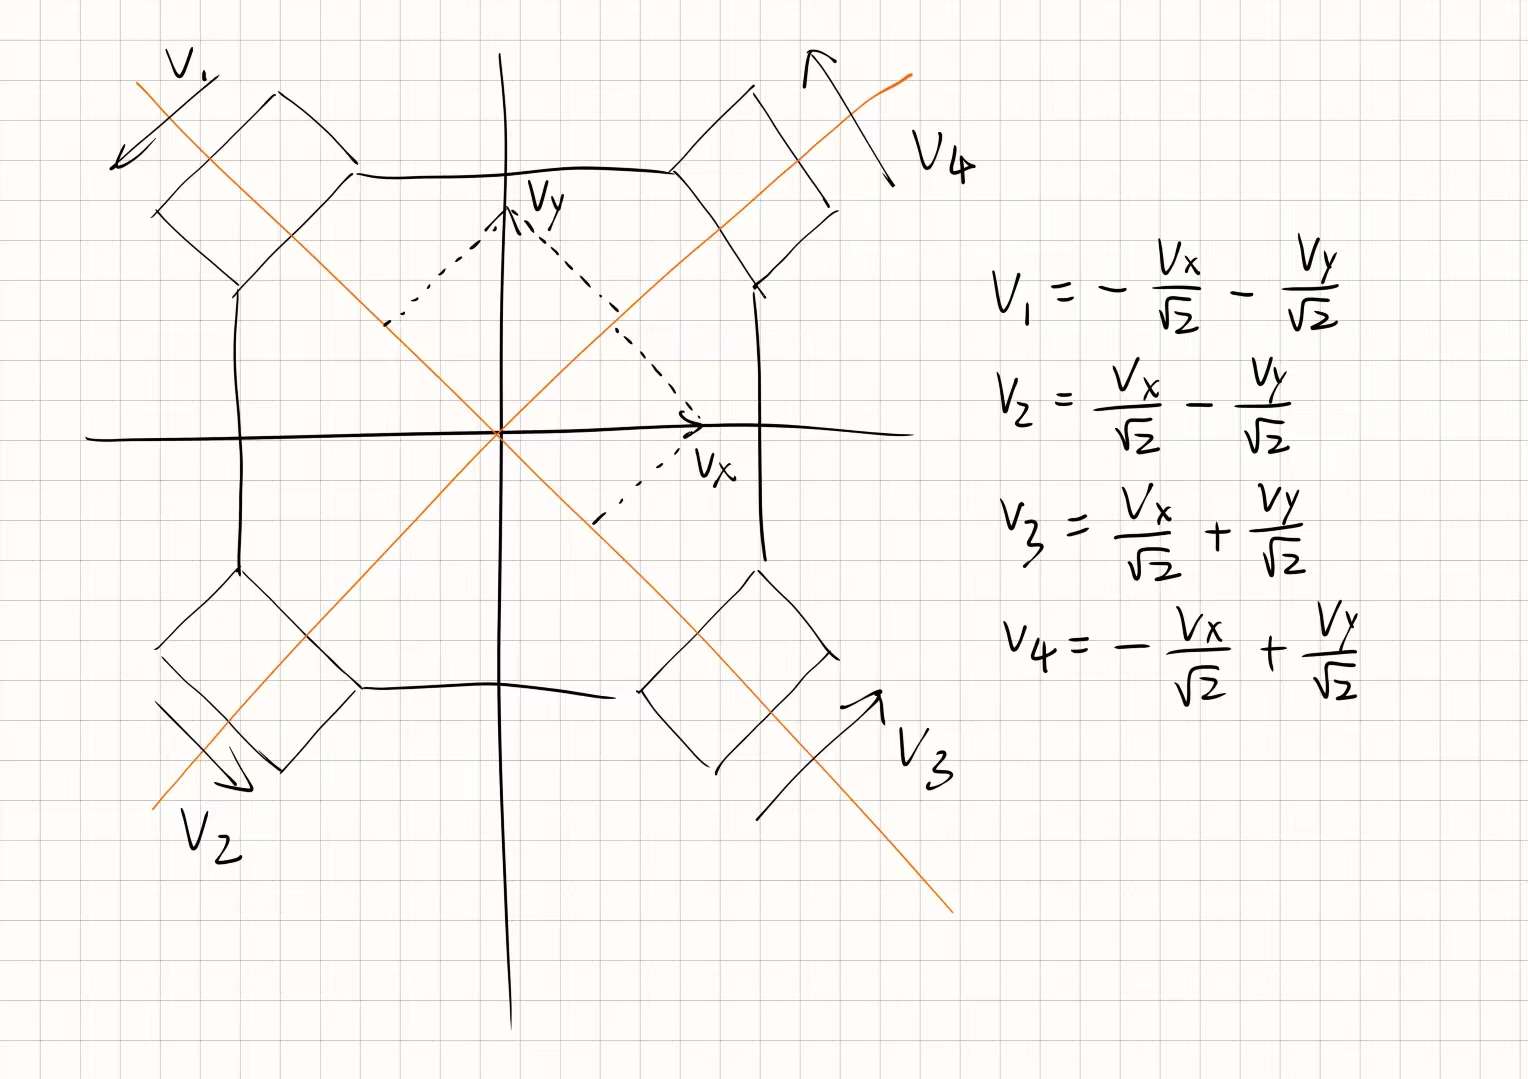 V₁
V₄
Vy
Vx
V₃
V₂
V₁ = - Vx/√2 - Vy/√2
V₂ = Vx/√2 - Vy/√2
V₃ = Vx/√2 + Vy/√2
V₄ = - Vx/√2 + Vy/√2